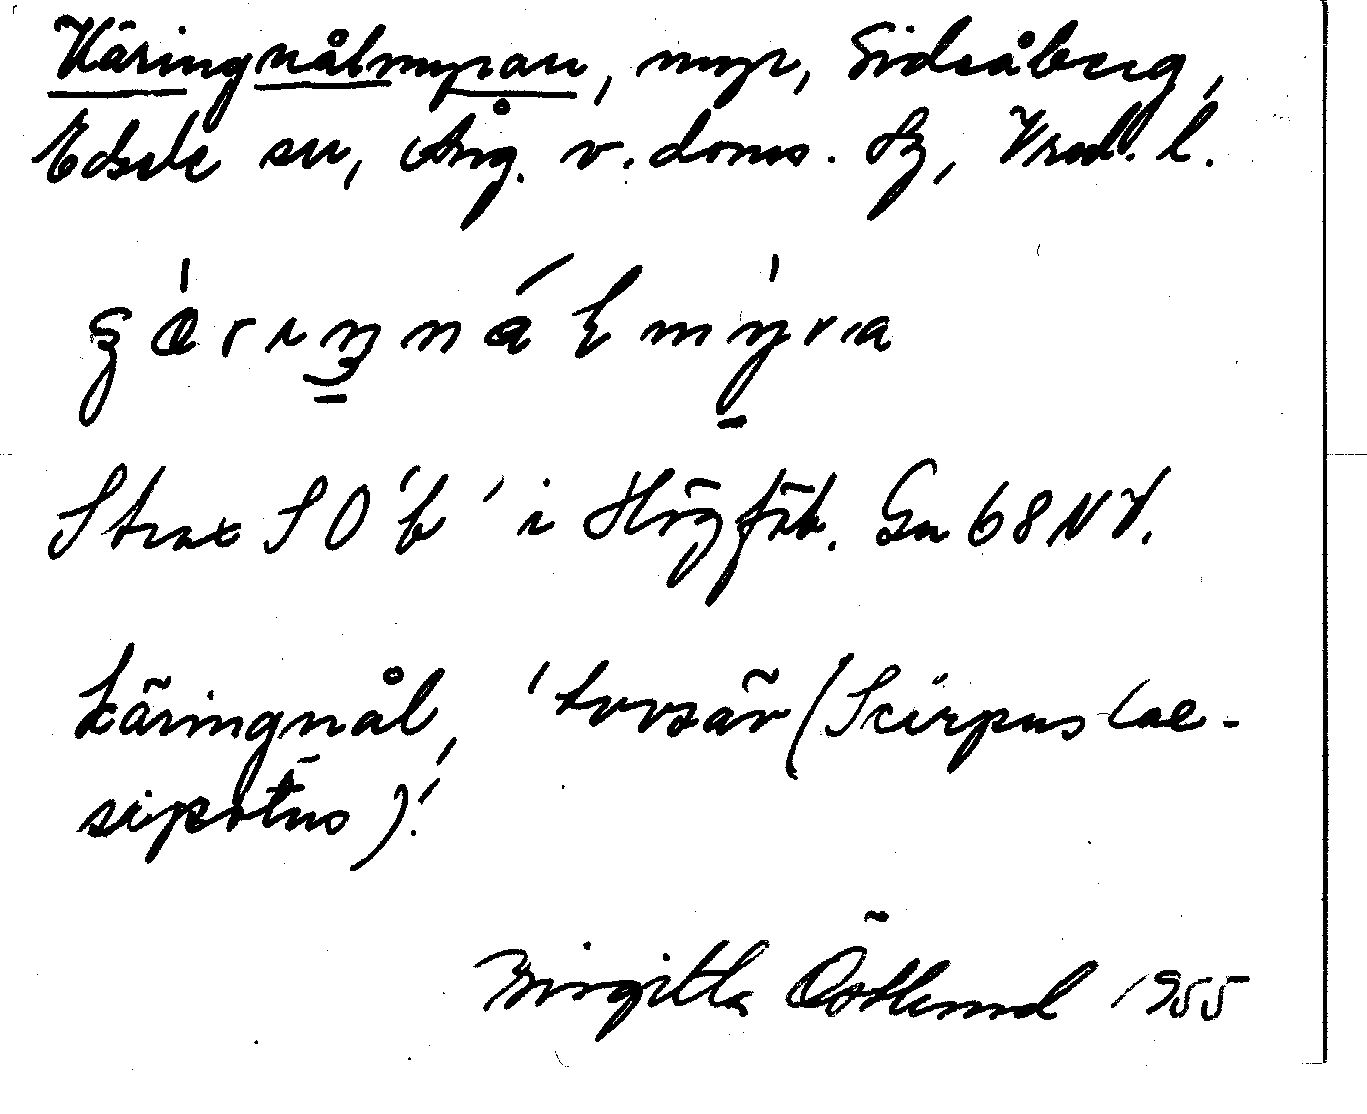 Käringnålmyran, myr, Sidsåberg,
Edsele sn, Ång. v. doms. fg, Vrml. l.
Strax SO 'b' i Högfäb. Gm 68 NV.
käringnål, 'tuvsäv (Scirpus cae-
spitōtus)!'
Birgitta Östlund 1955